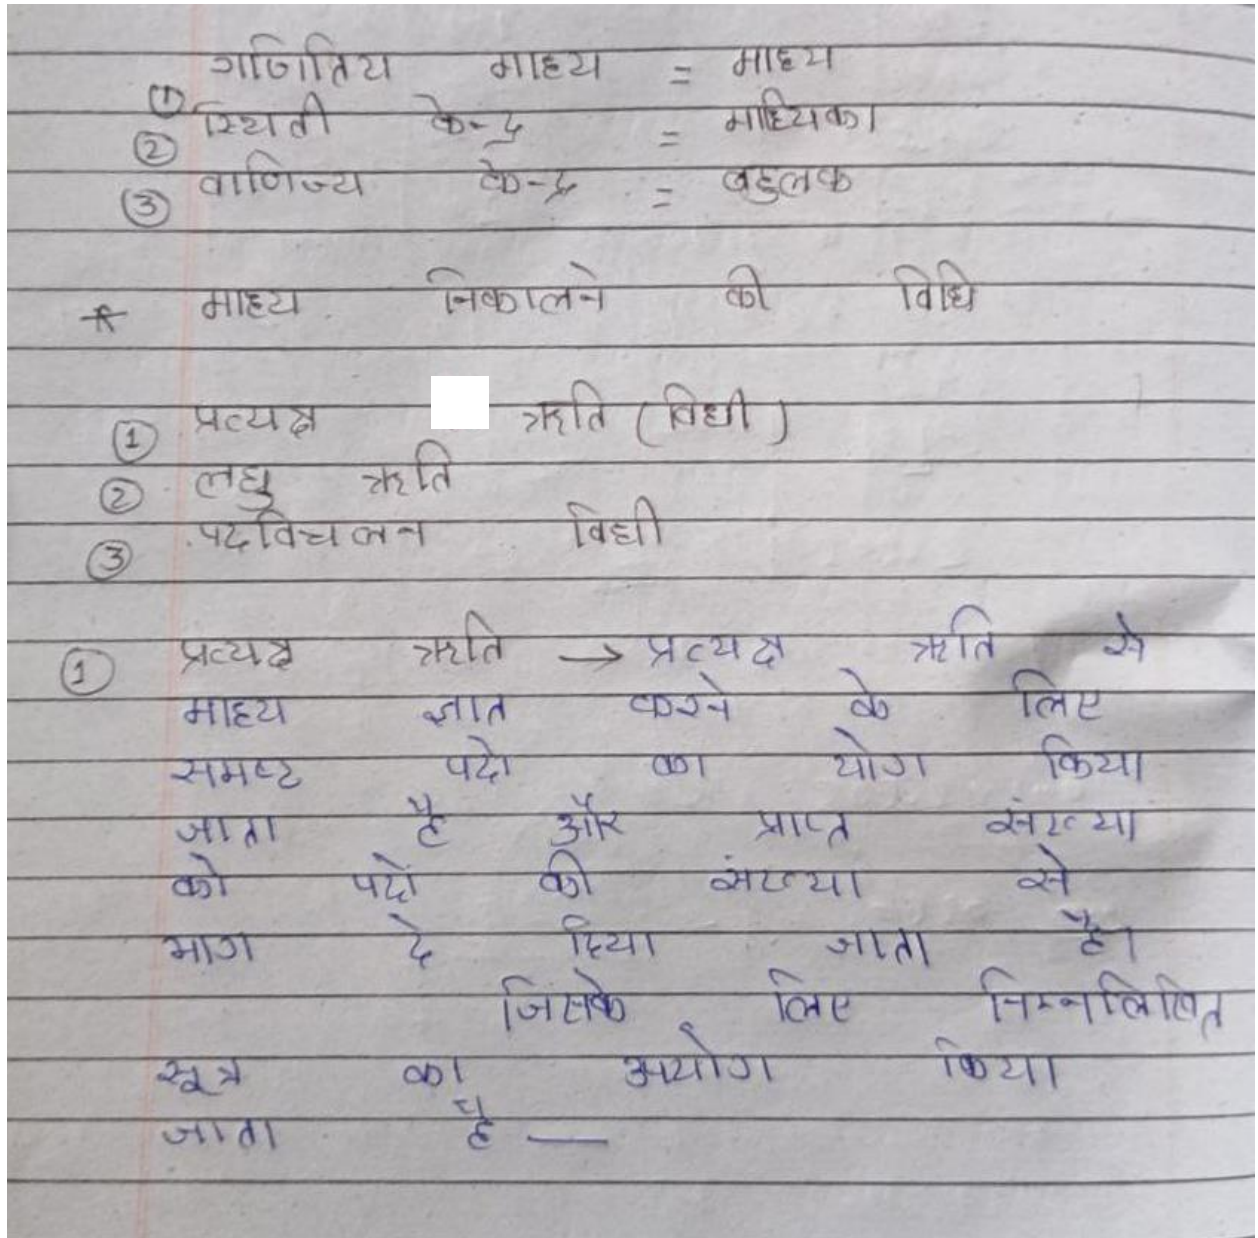 ① गणितिय माध्य = माध्य
② स्थिती केन्द्र = माध्यिका
③ वाणिज्य केन्द्र = बहुलक
* माध्य निकालने की विधि
① प्रत्यक्ष ऋति (विधी)
② लघु ऋति
③ पदविचलन विधी
① प्रत्यक्ष ऋति → प्रत्यक्ष ऋति से
माध्य ज्ञात करने के लिए
समष्ट पदो का योग किया
जाता है और प्राप्त संख्या
को पदों की संख्या से
भाग दे दिया जाता है।
जिसके लिए निम्नलिखित
सूत्र का किया
जाता है —